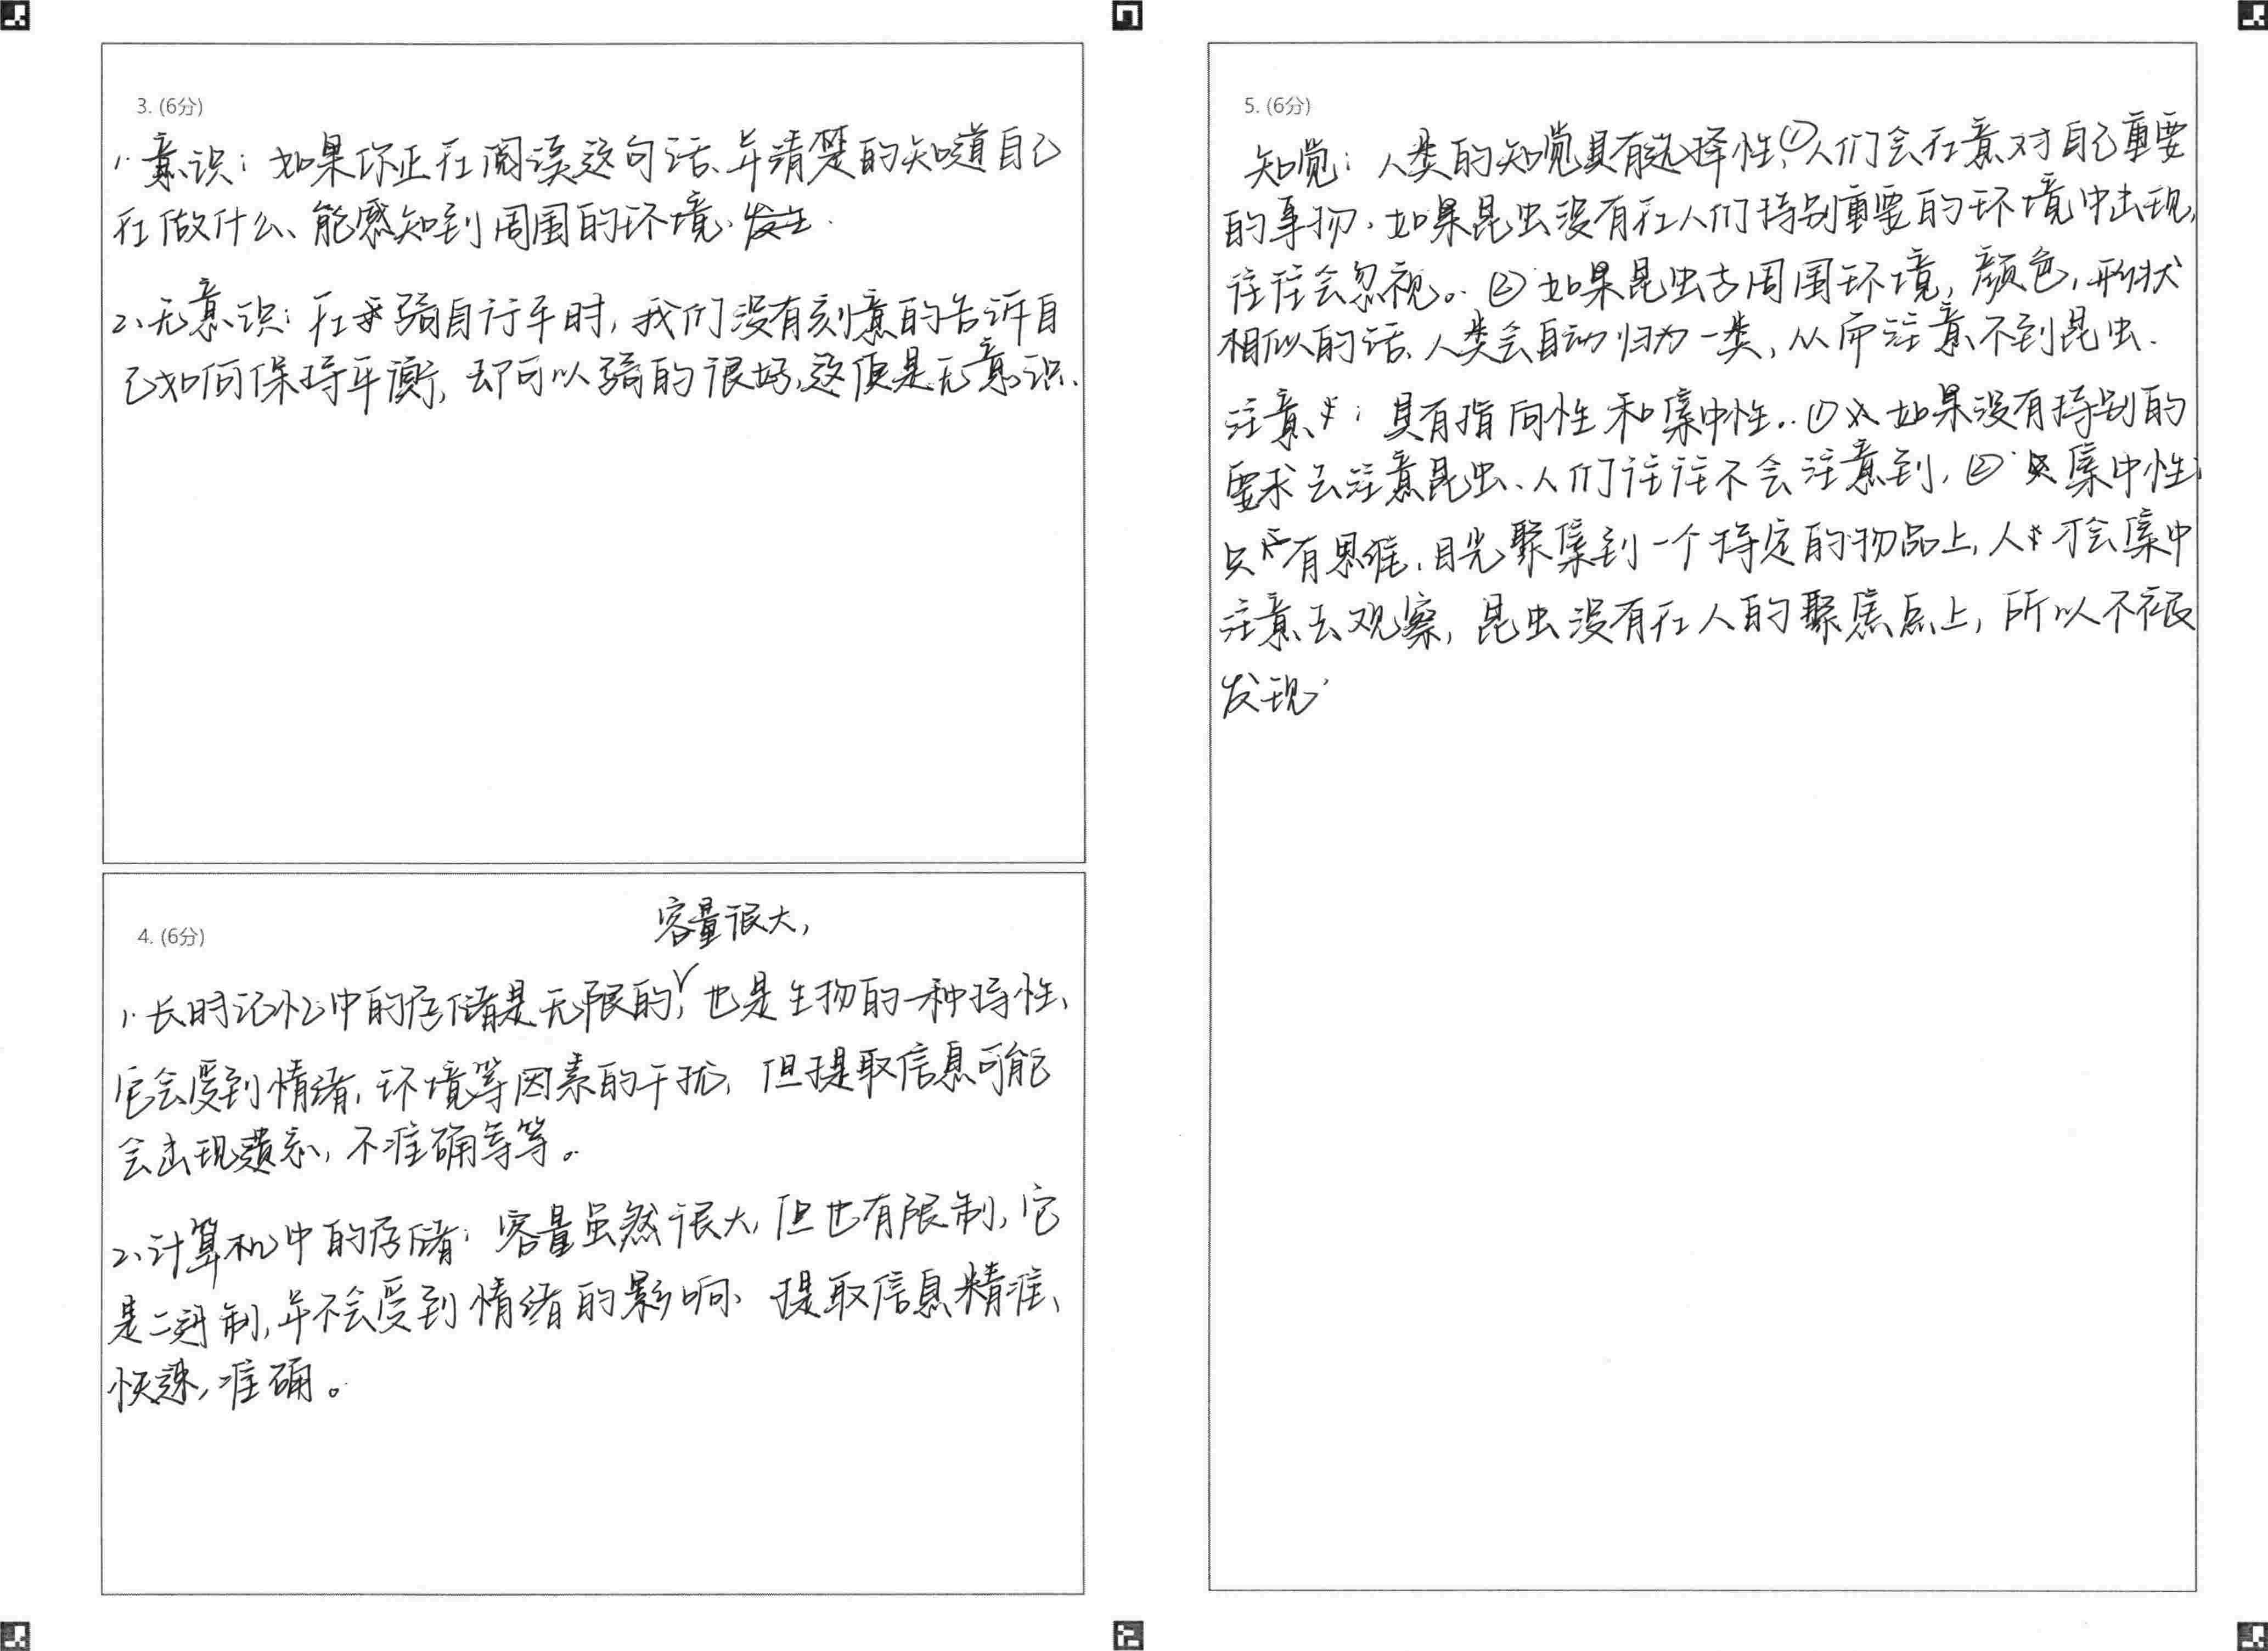 3. (6分)
1. 意识：如果你正在阅读这句话、并清楚的知道自己
在做什么、能感知到周围的环境、发生.
2、无意识：在骑自行车时，我们没有刻意的告诉自
己如何保持平衡，却可以骑的很好，这便是无意识.
4. (6分)
容量很大，
1. 长时记忆中的存储是无限的，也是生物的一种特性，
它会受到情绪，环境等因素的干扰，但提取信息可能
会出现遗忘，不准确等等。
2、计算机中的存储：容量虽然很大，但也有限制，它
是二进制，并不会受到情绪的影响、提取信息精准、
快速，准确。
5. (6分)
知觉：人类的知觉具有选择性，①人们会在意对自己重要
的事物，如果昆虫没有在人们特别重要的环境中出现，
往往会忽视。②如果昆虫与周围环境，颜色，形状
相似的话、人类会自动归为一类，从而注意不到昆虫.
注意：具有指向性和集中性..①如果没有特别的
要求去注意昆虫、人们往往不会注意到，②集中性，
只有思维，目光聚集到一个特定的物品上，人才会集中
注意去观察，昆虫没有在人的聚焦点上，所以不被
发现